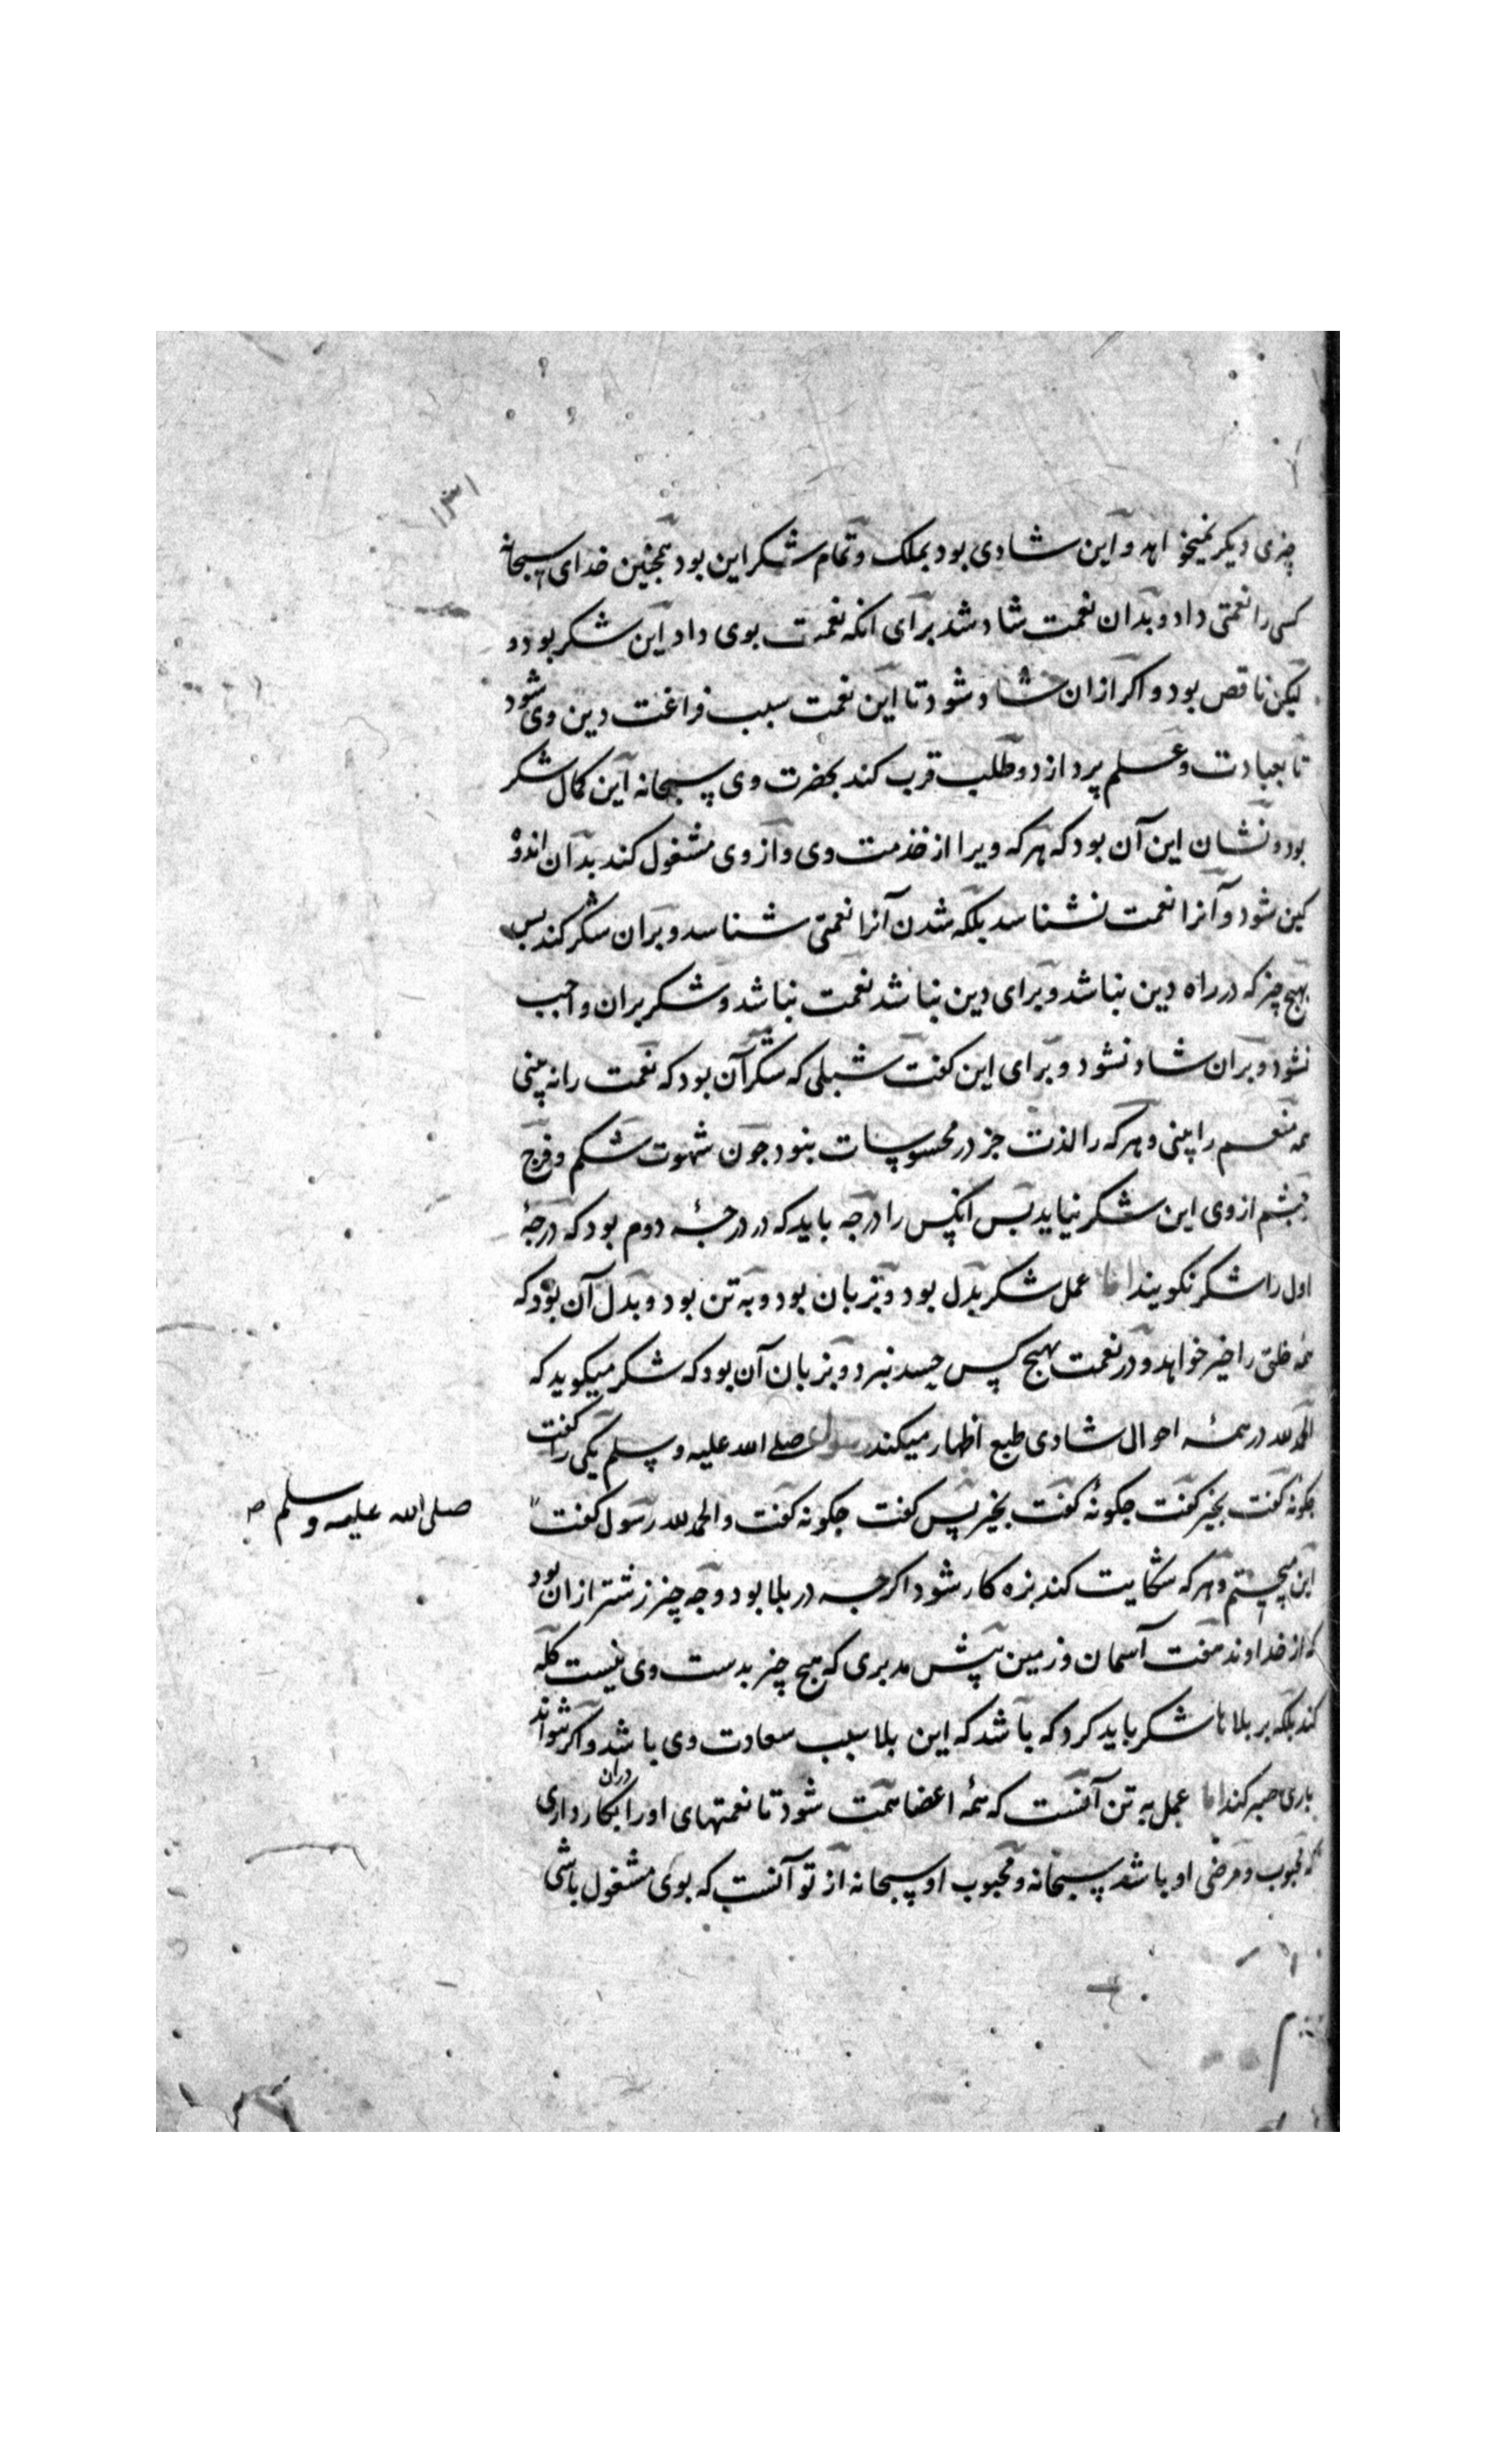 چیزی دیکر نمیخواهد و این شادی بود بملک و تمام شکر این بود همچنین خدای سبحانه
کسی را نعمتی داد و بدان نعمت شاد شد برای انکه نعمت بوی داد این شکر بود و
لیکن ناقص بود و اکر ازان شاد شود تا این نعمت سبب فراغت دین وی شود
تا بعبادت و علم پردازد و طلب قرب کند بحضرت وی سبحانه این کمال شکر
بود و نشان این آن بود که هرکه ویرا از خدمت وی و از وی مشغول کند بدان اندوه
کین شود و آنرا نعمت نشناسد بلکه شدن آنرا نعمتی شناسد و بران شکر کند پس
بهیچ چیز که در راه دین نباشد و برای دین نباشد نعمت نباشد و شکر بران واجب
نشود و بران شاد نشود و برای این کفت شبلی که شکر آن بود که نعمت را نه بینی
همه منعم را بینی و هرکه را لذت جز در محسوسات نبود جون شهوت شکم و فرج
و چشم از وی این شکر نیاید پس انکس را درجه باید که در درجهٔ دوم بود که درجهٔ
اول را شکر نکویند اما عمل شکر بدل بود و بزبان بود و به تن بود و بدل آن بود که
همه خلق را خیر خواهد و در نعمت بهیج کس حسد نبرد و بزبان آن بود که شکر میکوید که
الحمد لله در همهٔ احوال شادی طبع اظهار میکند رسول صلے الله علیه و سلم یکی را کفت
جکونه کفت بخیر کفت جکونهٔ کفت بخیر پس کفت جکونه کفت والحمد لله رسول کفت
صلی الله علیه و سلم صح
این میجستم و هرکه شکایت کند بزه کار شود اکرچه در بلا بود و چه چیز زشتر ازان بود
که از خداوند هفت آسمان و زمین پیش مدبری که هیچ چیز بدست وی نیست کله
کند بلکه بر بلا ها شکر باید کرد که باشد که این بلا سبب سعادت وی باشد و اکر نتواند
باری صبر کند اما عمل به تن آنست که همهٔ اعضا همت شود تا نعمتهای او را دران بکار داری
که محبوب و مرضی او باشد سبحانه و محبوب او سبحانه از تو آنست که بوی مشغول باشی